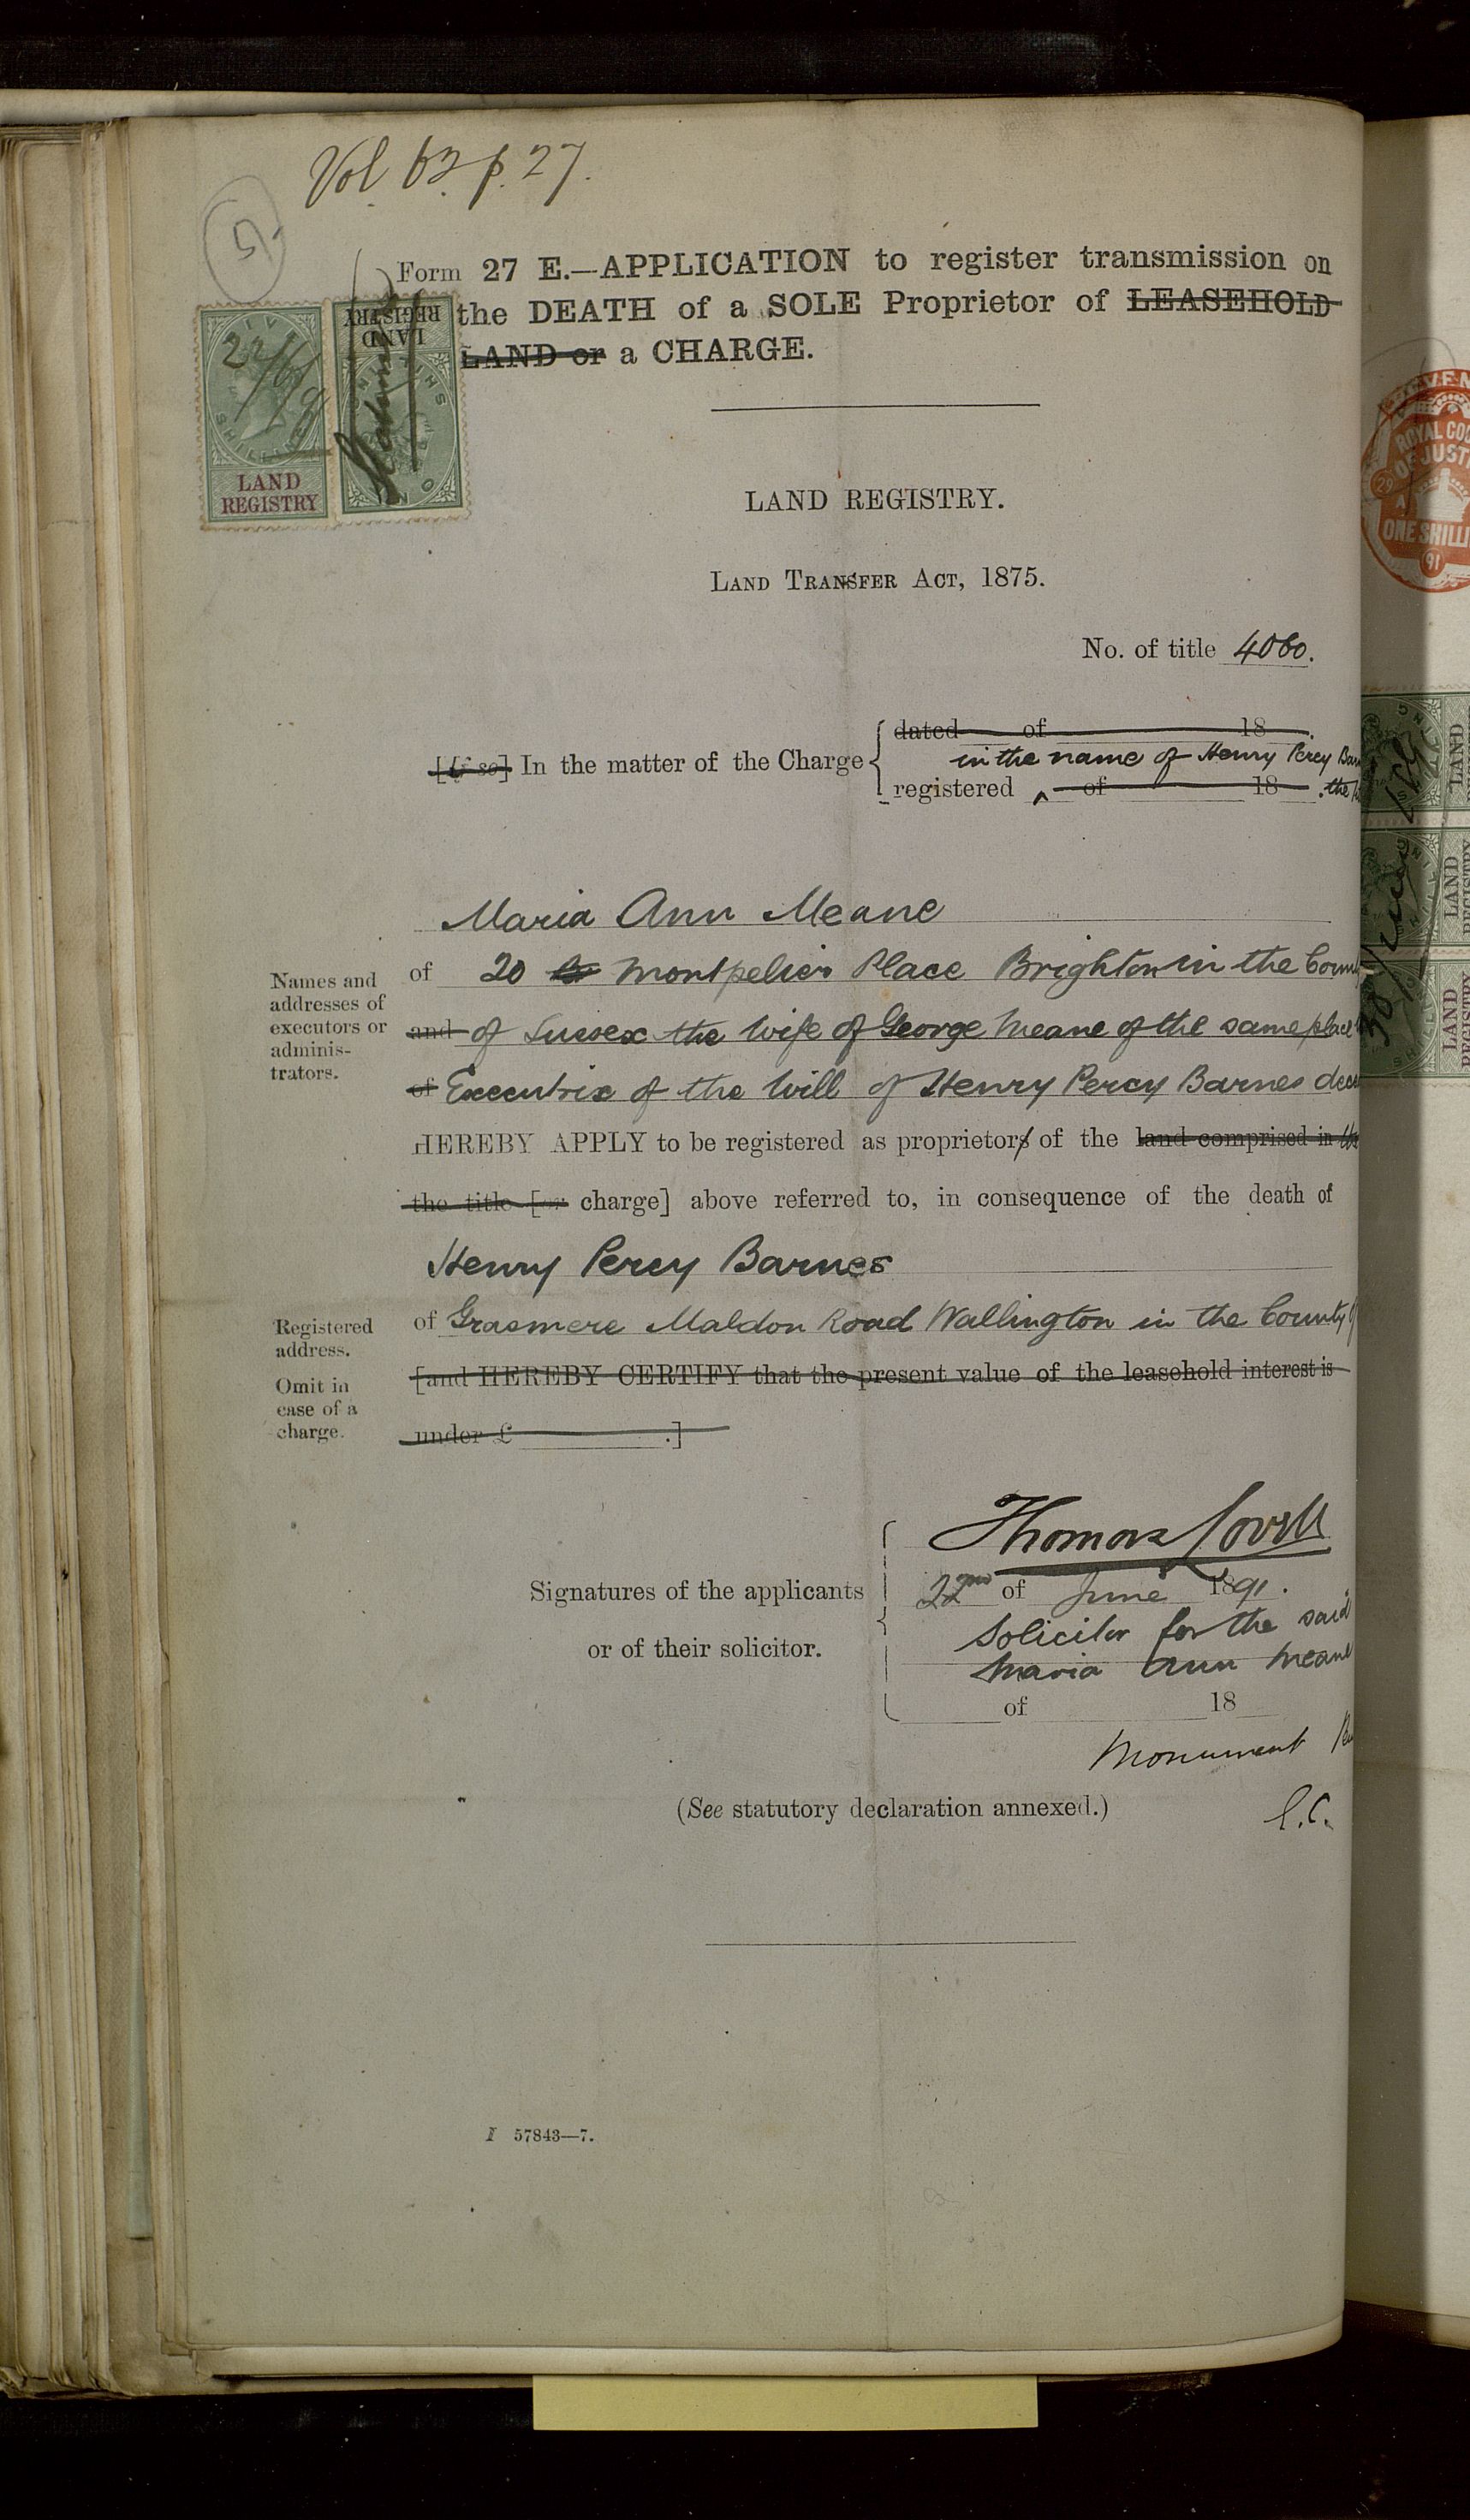 Vol 63. p. 27.
5.
Form 27 E.—APPLICATION to register transmission on
the DEATH of a SOLE Proprietor of LEASEHOLD
LAND or a CHARGE.
22/6/91
LAND REGISTRY
LAND REGISTRY
LAND REGISTRY.
LAND TRANSFER ACT, 1875.
No. of title 4060.
dated of 18 .
[If so] In the matter of the Charge in the name of Henry Percy
registered ^ of 18 . the
Maria Ann Meane
Names and addresses of executors or adminis-trators.
of 20 Montpelier Place Brighton in the
and of Sussex the Wife of George Meane of the same place
of Executrix of the Will of Henry Percy Barnes
HEREBY APPLY to be registered as proprietors of the land comprised in the
the title [or charge] above referred to, in consequence of the death of
Henry Percy Barnes
Registered address.
of Grasmere Maldon Road Wallington in the County
Omit in case of a charge.
[and HEREBY CERTIFY that the present value of the leasehold interest is
under £ .]
Thomas Lovell
Signatures of the applicants
22nd of June 1891.
or of their solicitor.
Solicitor for the said
Maria Ann Meane
of 18
Monument
E.C.
(See statutory declaration annexed.)
I 57843—7.
ROYAL
ONE
91
LAND
LAND REGISTRY
LAND REGISTRY